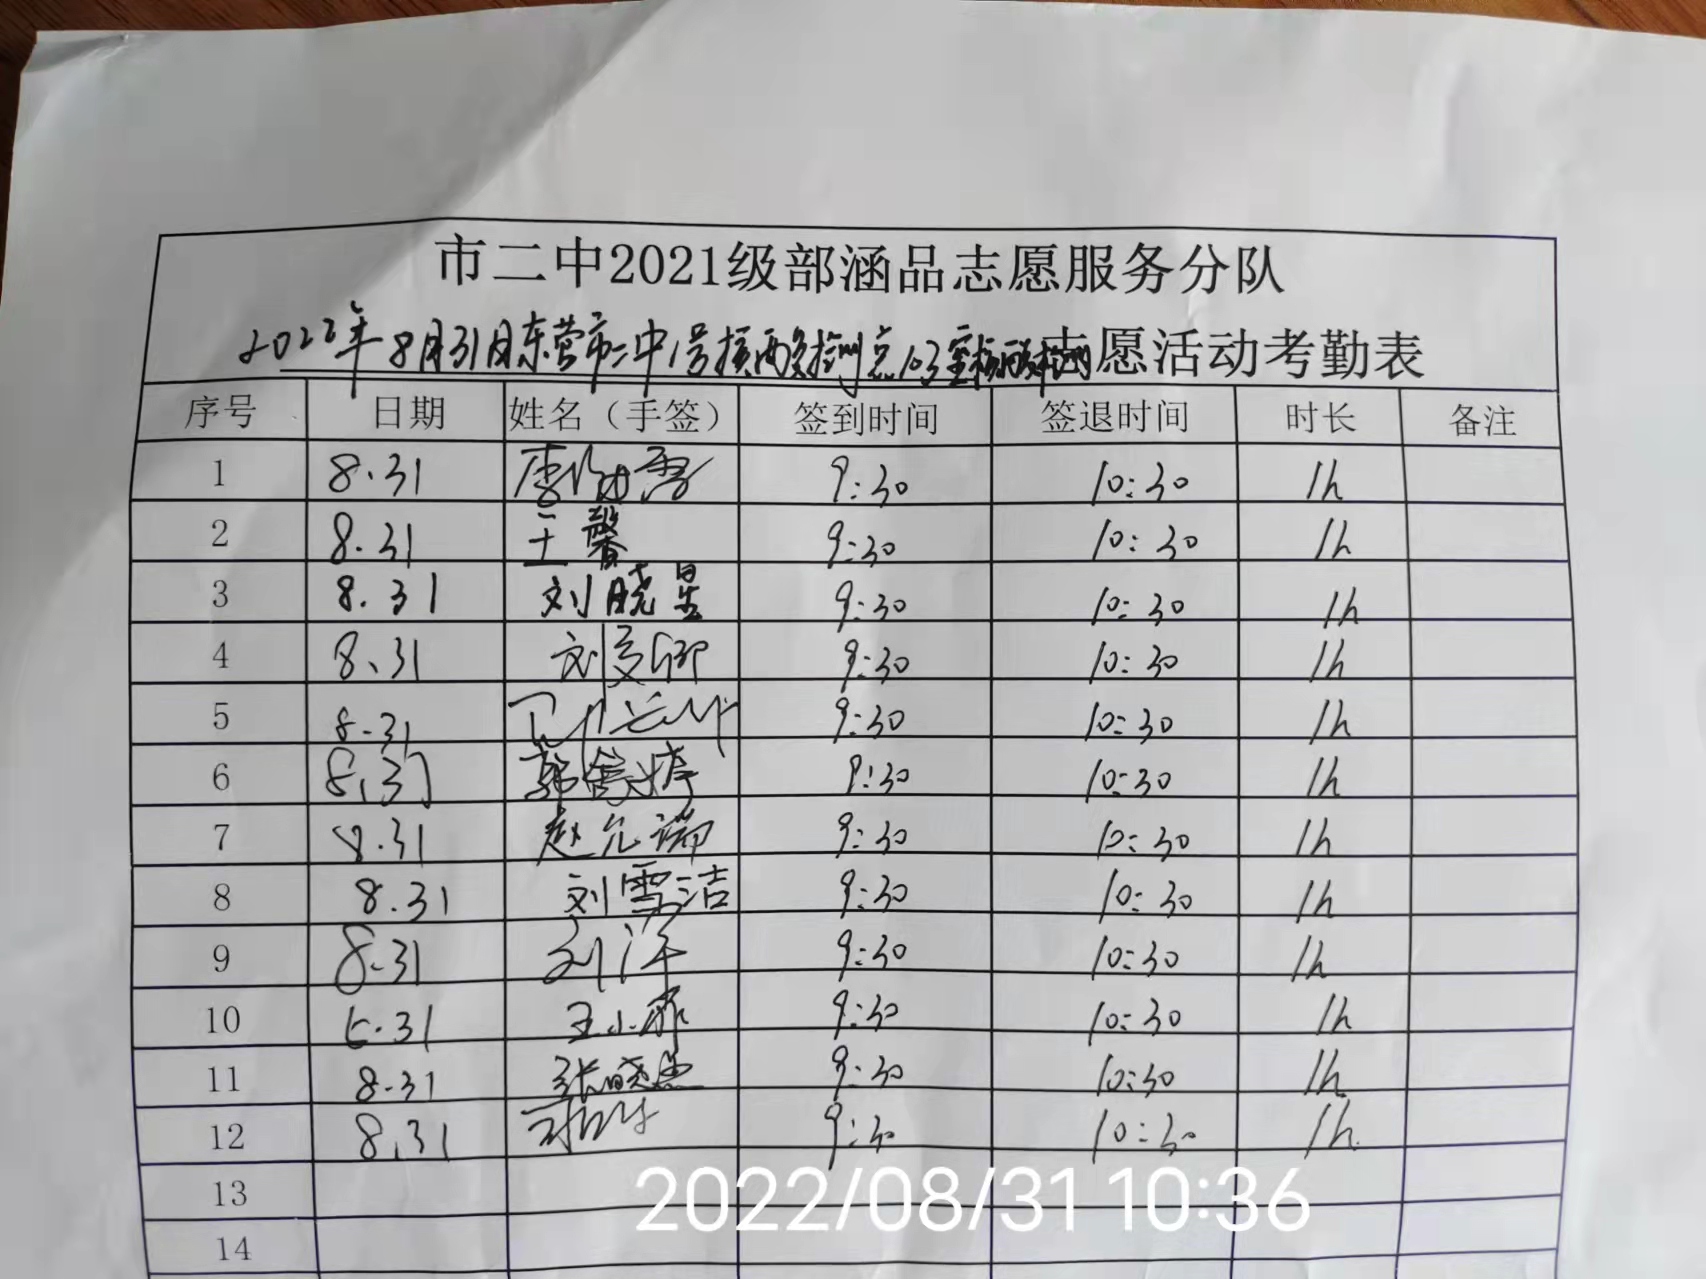 市二中2021级部涵品志愿服务分队
2022年8月31日东营市二中1号核酸检测点103室核酸检测志愿活动考勤表
序号 日期 姓名（手签） 签到时间 签退时间 时长 备注
1 8.31 李 9:30 10:30 1h
2 8.31 王馨 9:30 10:30 1h
3 8.31 刘晓星 9:30 10:30 1h
4 8.31 刘 卿 9:30 10:30 1h
5 8.31 9:30 10:30 1h
6 8.31 郭 婷 9:30 10:30 1h
7 8.31 赵允端 9:30 10:30 1h
8 8.31 刘雪洁 9:30 10:30 1h
9 8.31 刘洋 9:30 10:30 1h
10 8.31 王小 9:30 10:30 1h
11 8.31 张晓 9:30 10:30 1h
12 8.31 9:30 10:30 1h
13
14
2022/08/31 10:36